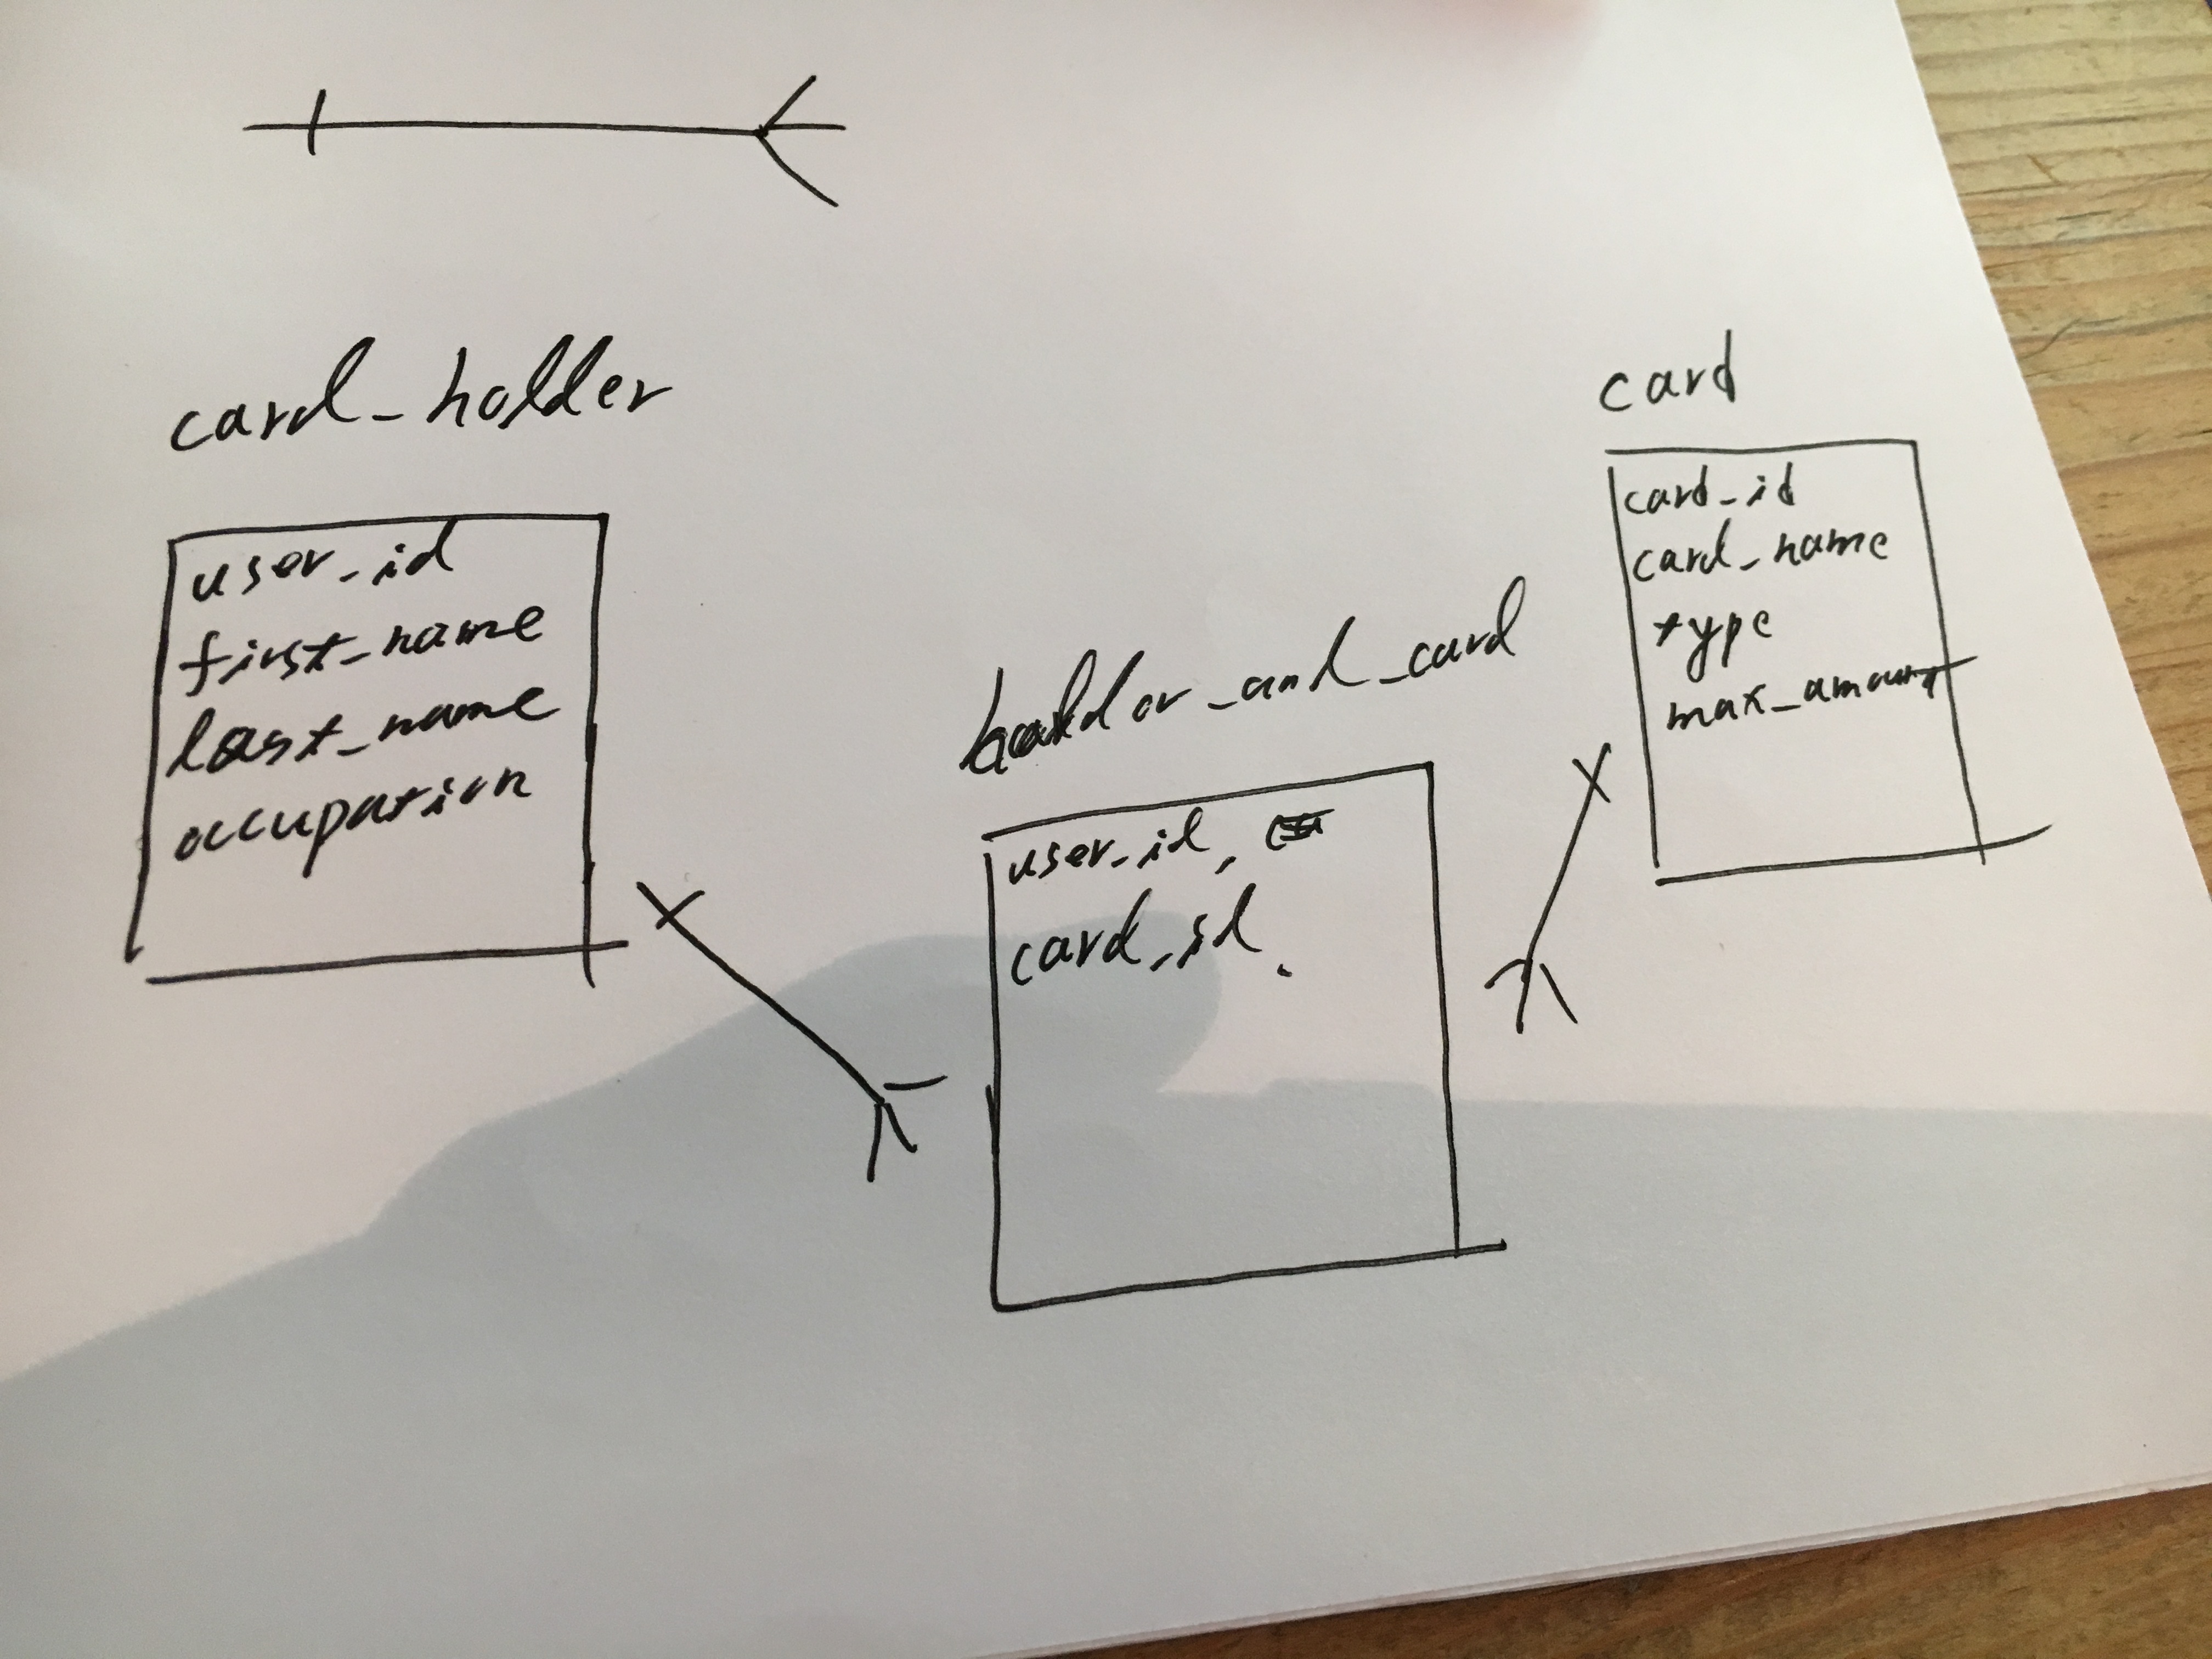 card_holder
user_id
first_name
last_name
occupation
holder_and_card
user_id,
card_id.
card
card_id
card_name
type
max_amount